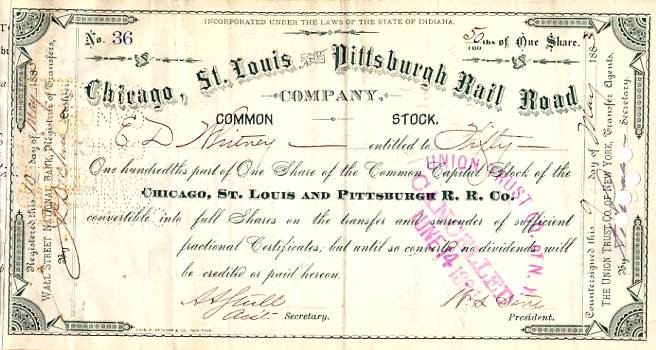 INCORPORATED UNDER THE LAWS OF THE STATE OF INDIANA.
No. 36
50/100 ths of One Share.
Chicago, St. Louis AND Pittsburgh Rail Road
COMPANY,
COMMON STOCK.
E D Whitney entitled to Fifty
One hundredths part of One Share of the Common Capital Stock of the
CHICAGO, ST. LOUIS AND PITTSBURGH R. R. CO.
convertible into full Shares on the transfer and surrender of sufficient
fractional Certificates, but until so converted no dividends will
be credited or paid hereon.
Asst Secretary.
President.
NEW YORK.
Registered this day of May 188
WALL STREET NATIONAL BANK, Registrar of Transfers,
By Cashier.
Countersigned this 9 day of May 188
THE UNION TRUST CO. OF NEW YORK, Transfer Agents.
By Secretary.
UNION TRUST CO. OF N.Y.
CANCELLED